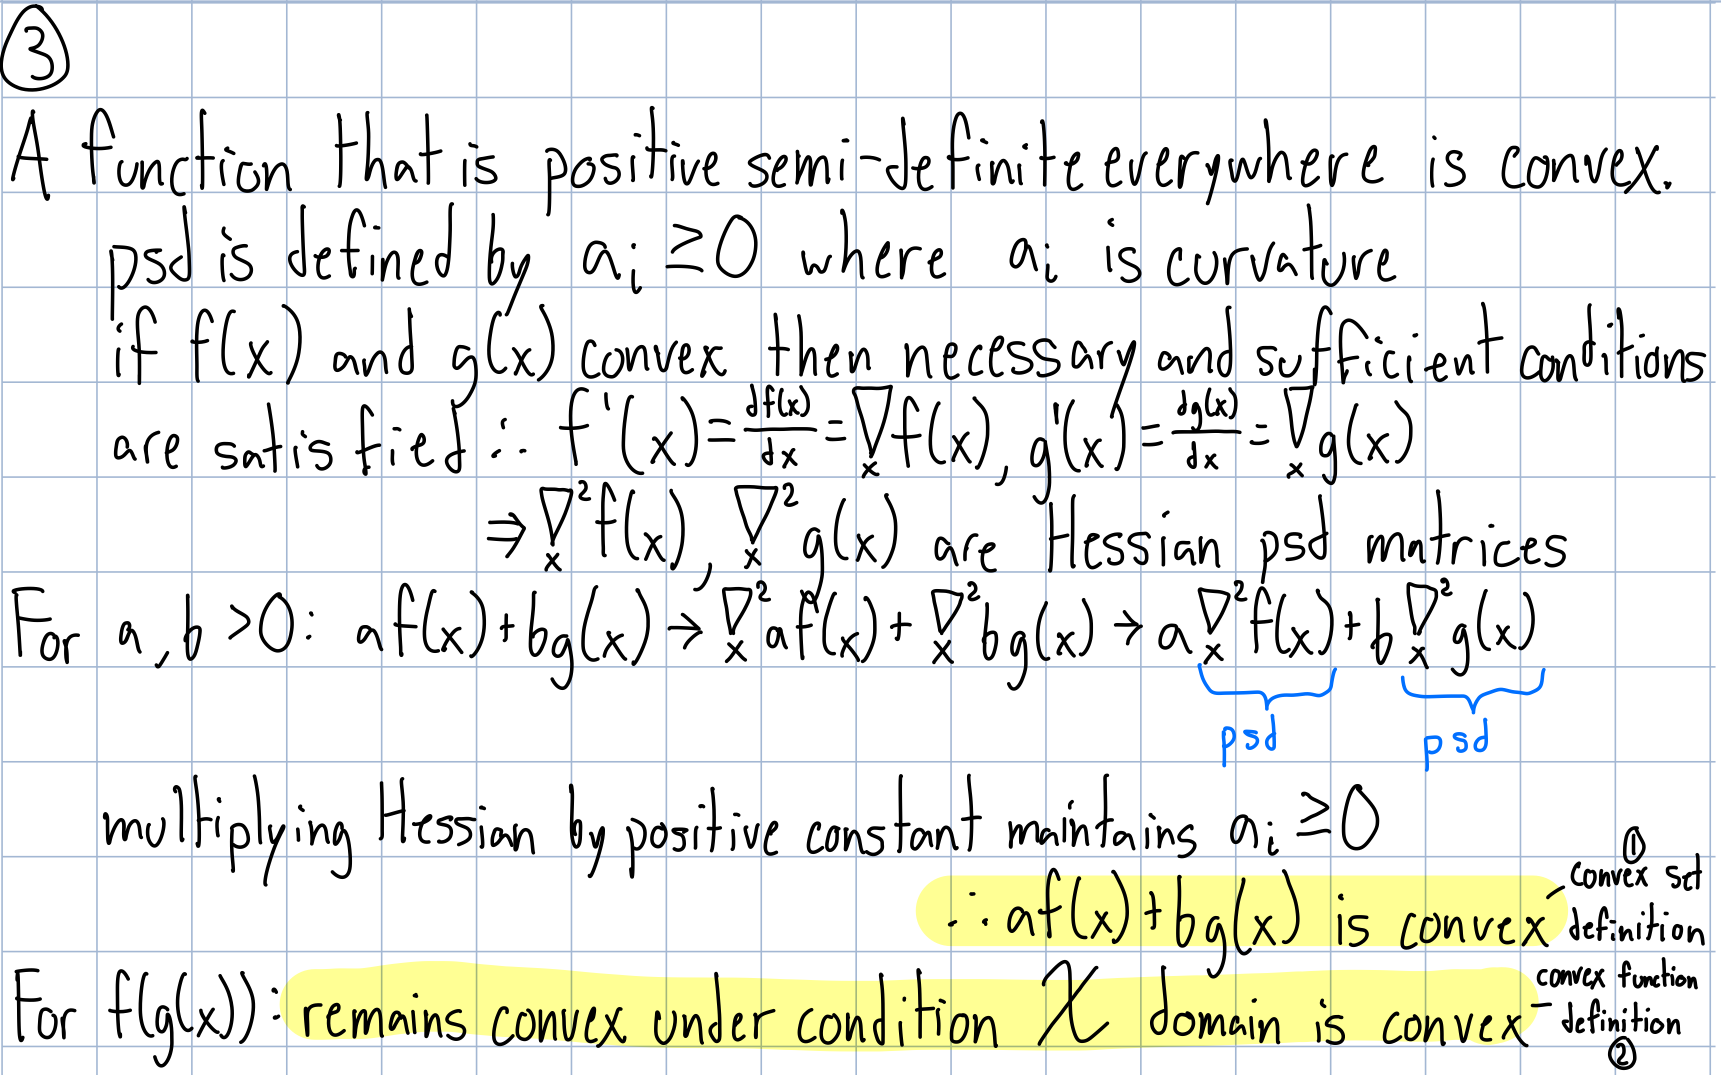 ③
A function that is positive semi-definite everywhere is convex.
psd is defined by aᵢ ≥ 0 where aᵢ is curvature
if f(x) and g(x) convex then necessary and sufficient conditions
are satisfied ∴ f'(x) = df(x)/dx = ∇ₓf(x), g'(x) = dg(x)/dx = ∇ₓg(x)
⇒ ∇ₓ²f(x), ∇ₓ²g(x) are Hessian psd matrices
For a, b > 0: af(x) + bg(x) → ∇ₓ²af(x) + ∇ₓ²bg(x) → a∇ₓ²f(x) + b∇ₓ²g(x)
psd psd
multiplying Hessian by positive constant maintains aᵢ ≥ 0
∴ af(x) + bg(x) is convex
①
convex set
definition
For f(g(x)): remains convex under condition X domain is convex
convex function
definition
②